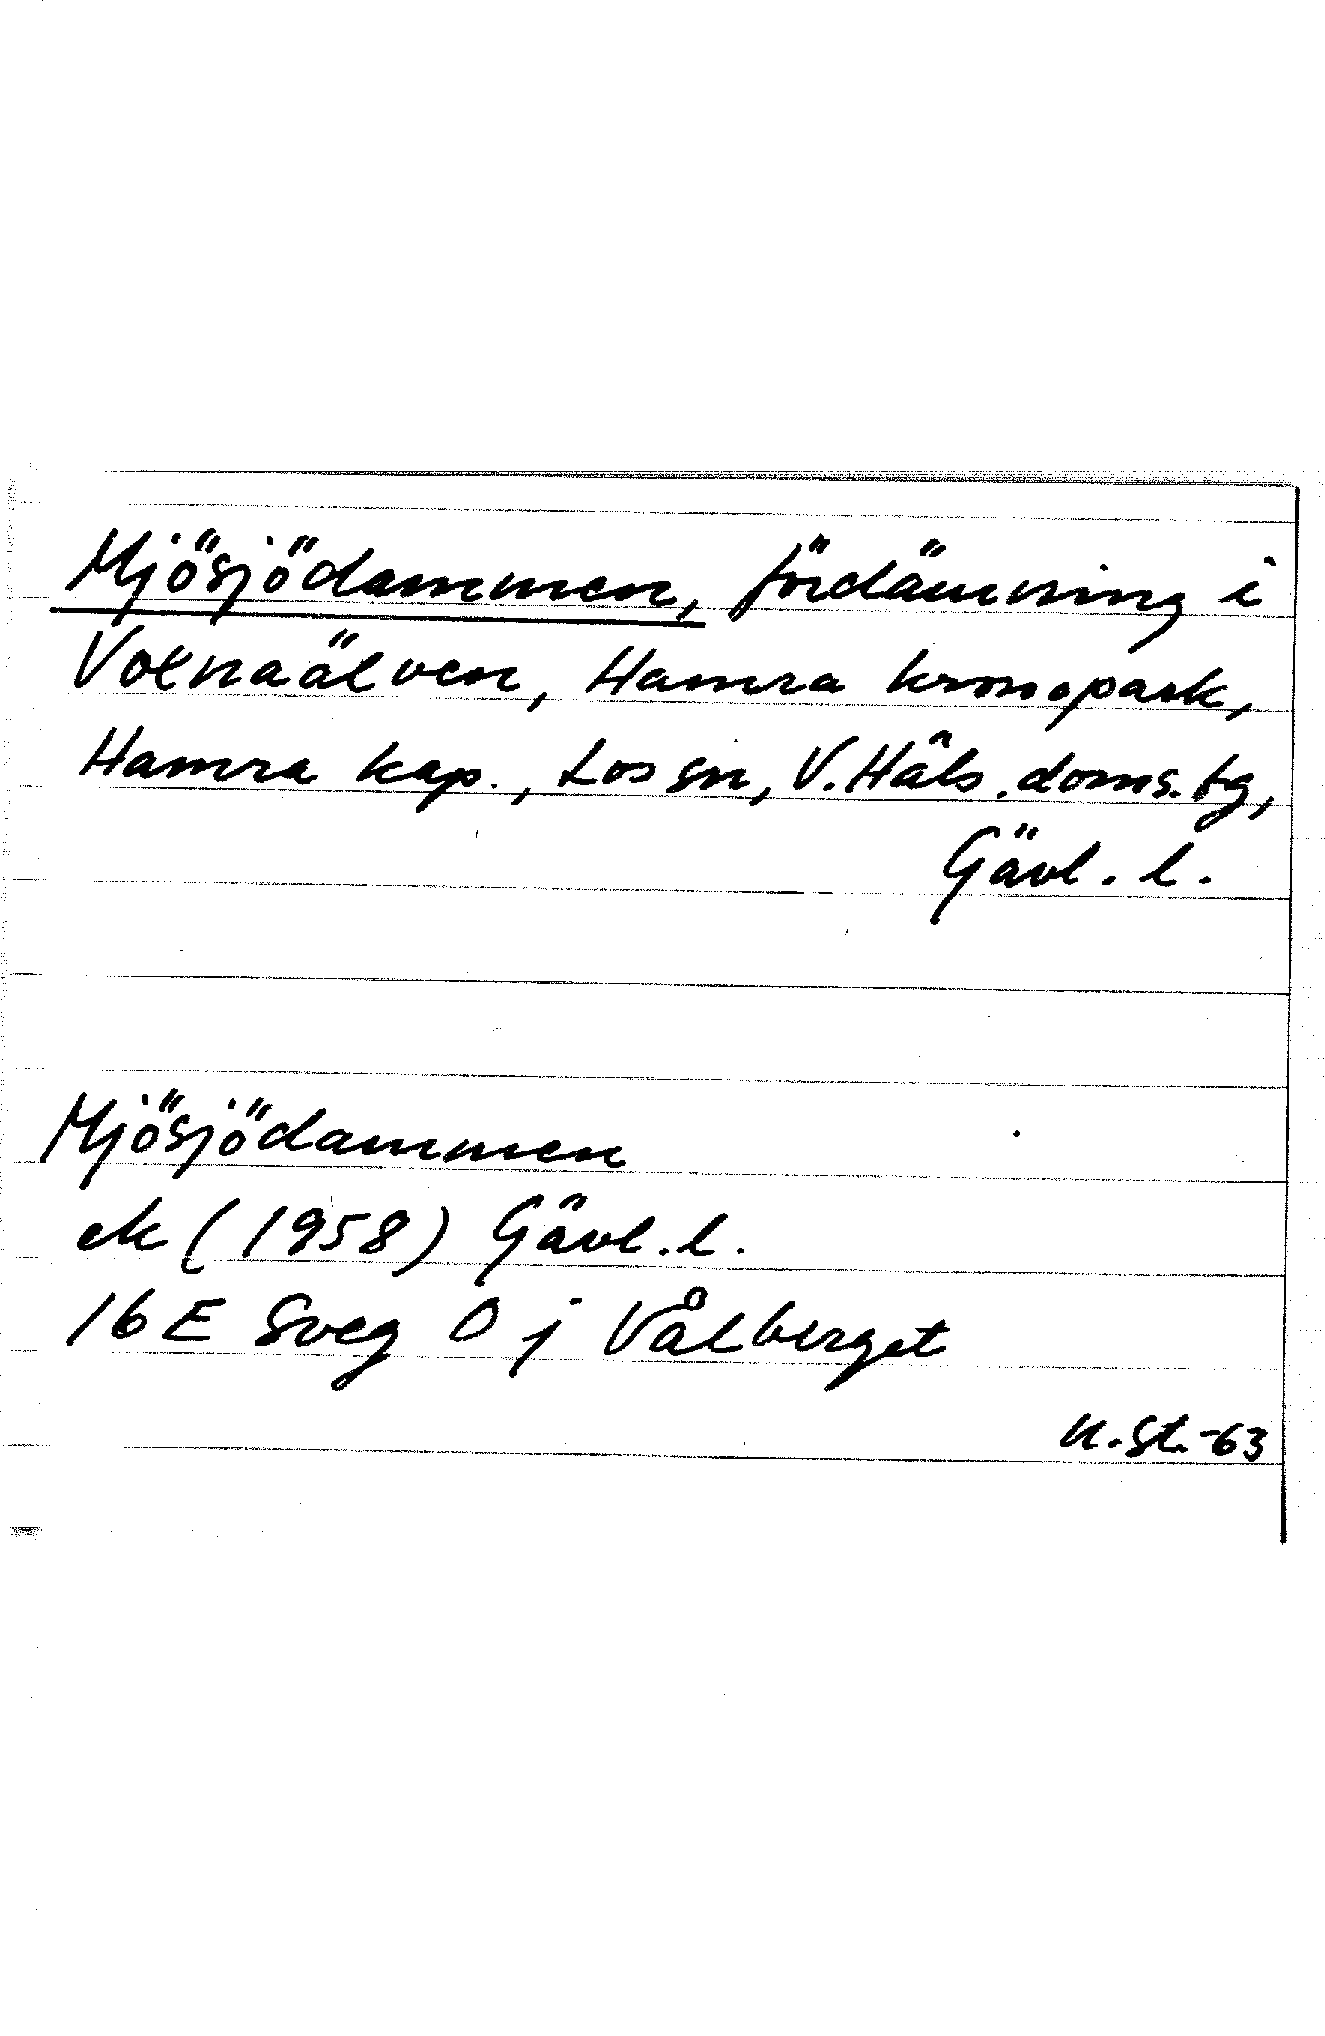 Mjösjödammen, fördämning i
Volnaälven, Hamra kronopark,
Hamra kap., Los sn, V. Häls. doms. tg,
Gävl. l.
Mjösjödammen
ek (1958) Gävl. l.
16 E Sveg 0 j Vålberget
N. St. -63